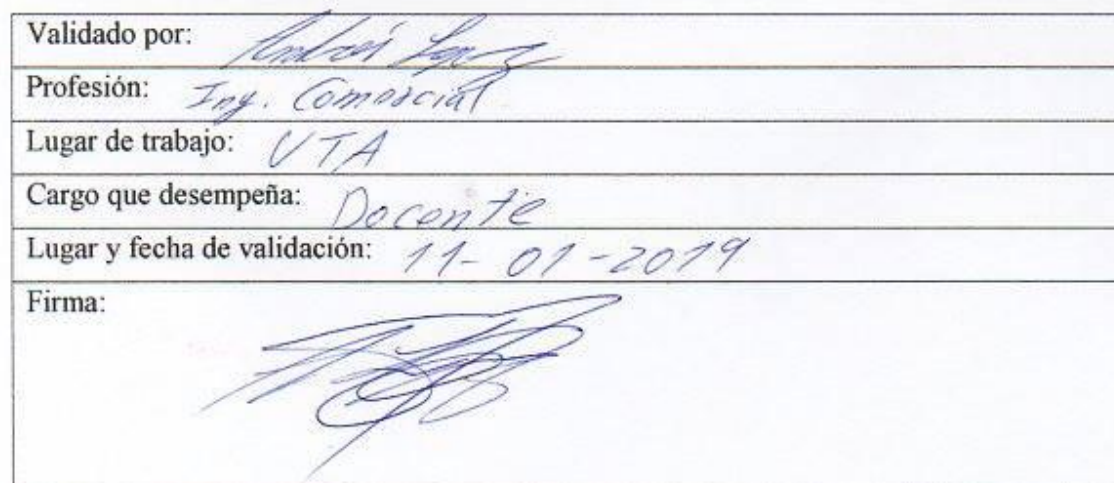 Validado por: Andrés López
Profesión: Ing. Comercial
Lugar de trabajo: UTA
Cargo que desempeña: Docente
Lugar y fecha de validación: 11-01-2019
Firma: